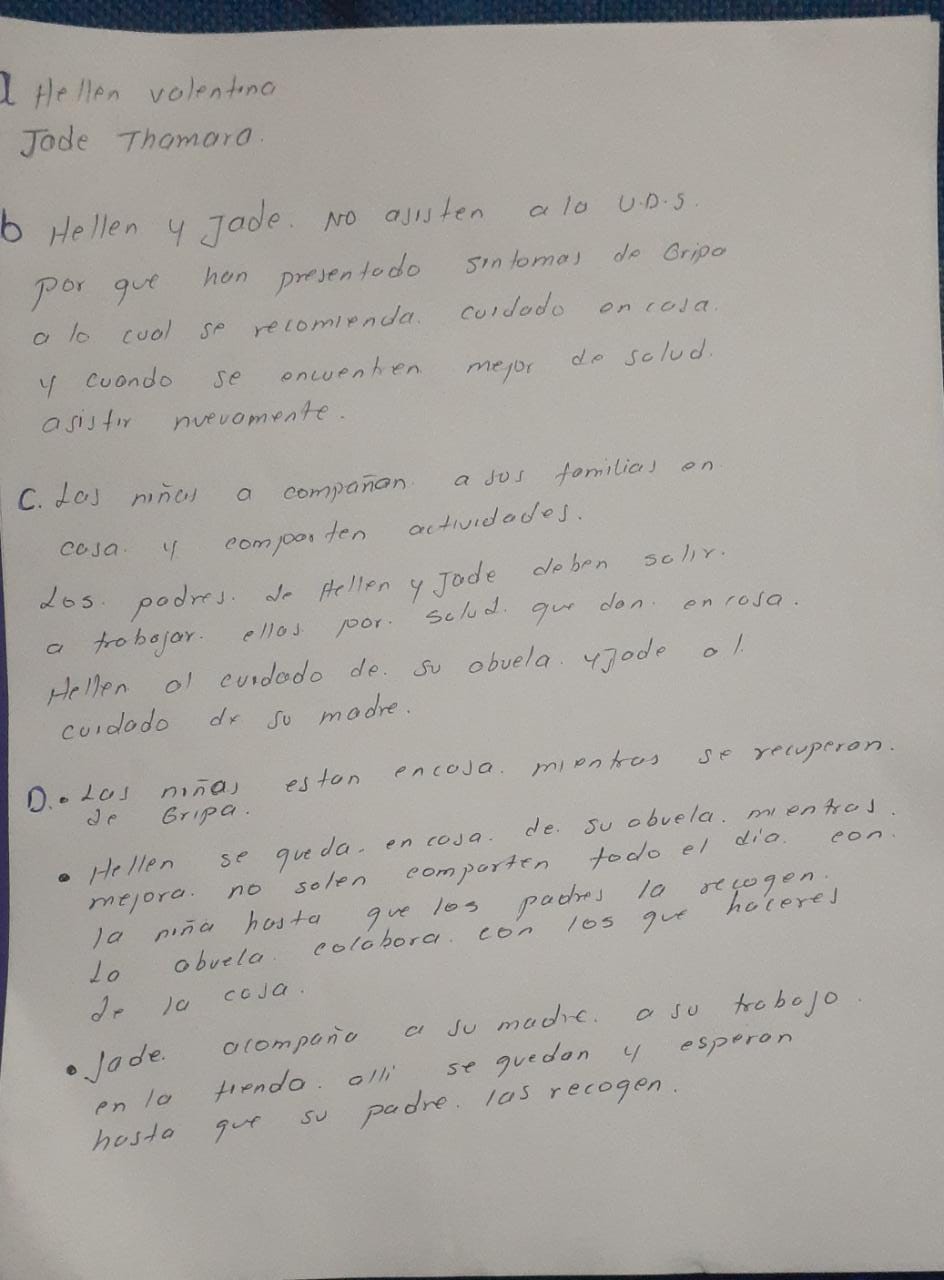 1 Hellen valentina
Jade Thamara.
b Hellen y Jade. No asisten a la U.D.S.
por que han presentado sintomas de Gripa
a lo cual se recomienda. cuidado en casa.
y cuando se encuentren mejor de salud.
asistir nuevamente.
C. Las niñas a compañan. a sus familias en
casa. y comparten actividades.
Los. padres. de Hellen y Jade deben salir.
a trabajar. ellas por. salud. que dan. en casa.
Hellen al cuidado de. su abuela. y Jade al.
cuidado de su madre.
D. • Las niñas estan encasa. mientras se recuperan.
de Gripa.
• Hellen se queda. en casa. de. su abuela. mientras.
mejora. no solen comparten todo el dia. con.
la niña hasta que los padres la recogen.
La abuela. colabora. con los que haceres
de la casa.
• Jade. acompaña a su madre. a su trabajo.
en la tienda. alli se quedan y esperan
hasta que su padre. las recogen.